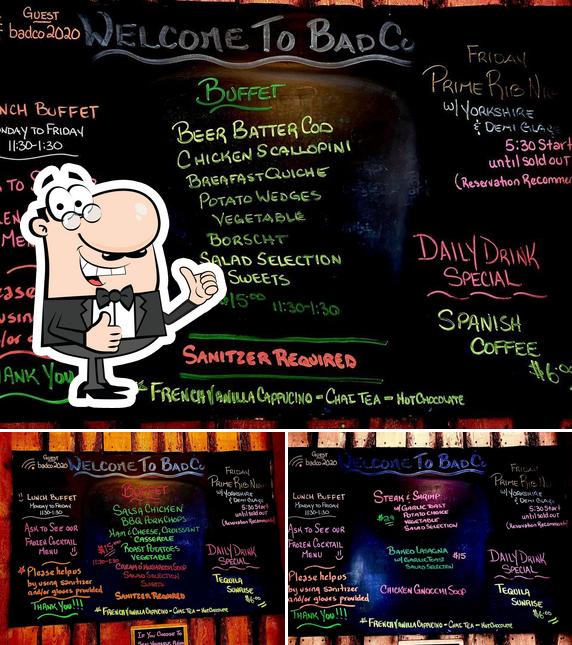 GUEST
badco2020
WELCOME TO BAD Co
LUNCH BUFFET
MONDAY TO FRIDAY
11:30-1:30
THANK YOU
BUFFET
BEER BATTER COD
CHICKEN SCALLOPINI
BREAFAST QUICHE
POTATO WEDGES
VEGETABLE
BORSCHT
SALAD SELECTION
SWEETS
$15.00 11:30-1:30
SANITZER REQUIRED
FRENCH VANILLA CAPPUCINO - CHAI TEA - HOT CHOCOLATE
FRIDAY
PRIME RIB
W/ YORKSHIRE
& DEMI GLAZE
5:30 Start
until sold out
(Reservation Recommen
DAILY DRINK
SPECIAL
SPANISH
COFFEE
$6.00
GUEST
badco2020
WELCOME TO BAD Co
LUNCH BUFFET
MONDAY TO FRIDAY
11:30-1:30
ASK TO SEE OUR
FROZEN COCKTAIL
MENU
Please help us
by using sanitizer
and/or gloves provided
THANK YOU!!!
BUFFET
SALSA CHICKEN
BBQ PORK CHOPS
HAM & CHEESE CROISSANT
CASSEROLE
ROAST POTATOES
VEGETABLE
CREAM O MUSHROOM SOUP
SALAD SELECTION
SWEETS
SANITIZER REQUIRED
FRENCH VANILLA CAPPUCINO - CHAI TEA - HOT CHOCOLATE
FRIDAY
PRIME RIB
W/ YORKSHIRE
& DEMI GLAZE
5:30 Start
until sold out
(Reservation Recommend
DAILY DRINK
SPECIAL
TEQUILA
SUNRISE
$6.00
IF YOU CHOOSE TO
GUEST
badco2020
WELCOME TO BAD Co
LUNCH BUFFET
MONDAY TO FRIDAY
11:30-1:30
ASK TO SEE OUR
FROZEN COCKTAIL
MENU
Please help us
by using sanitizer
and/or gloves provided
THANK YOU!!!
STEAK & SHRIMP
W/ GARLIC TOAST
POTATO CHOICE
VEGETABLE
SALAD SELECTION
BAKED LASAGNA $15
W/ GARLIC TOAST
SALAD SELECTION
CHICKEN GNOCCHI SOUP
FRENCH VANILLA CAPPUCINO - CHAI TEA - HOT CHOCOLATE
FRIDAY
PRIME RIB
W/ YORKSHIRE
& DEMI GLAZE
5:30 Start
until sold out
(Reservation Recommend
DAILY DRINK
SPECIAL
TEQUILA
SUNRISE
$6.00